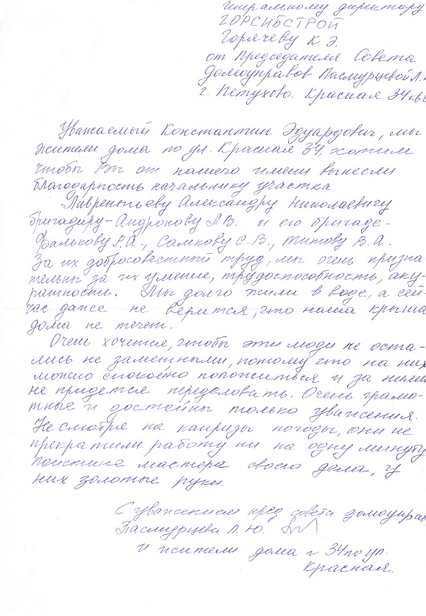 Генеральному директору
ГОРСИБСТРОЙ
Горячеву К.Э.
от Председателя Совета
домоуправов Пасмурцевой Л.
г. Петухово. Красная 34
Уважаемый Константин Эдуардович, мы
жители дома по ул. Красная 34, хотим
чтобы Вы от нашего имени вынесли
благодарность начальнику участка
Лаврентьеву Александру Николаевичу
бригадиру - Андронову Л.В. и его бригаде-
Фалькову Я.А., Самкову С.В., Титову В.А.
За их добросовестный труд, мы очень призна
тельны за их умение, трудоспособность, акку-
ратность. Мы долго жили в воде, а сей-
час даже не верится, что наша крыша
дома не течет.
Очень хочется, чтобы эти люди не оста-
лись не заметными, потому что на них
можно спокойно положиться и за ними
не придется переделовать. Очень грамо-
тные и достойны только уважения.
Не смотря на капризы погоды, они не
прекратили работу ни на одну минуту,
поистине мастера своего дела, у
них золотые руки.
С уважением пред совета домоуправ
Пасмурцева Л.Ю.
и жители дома 34 по ул.
Красная.